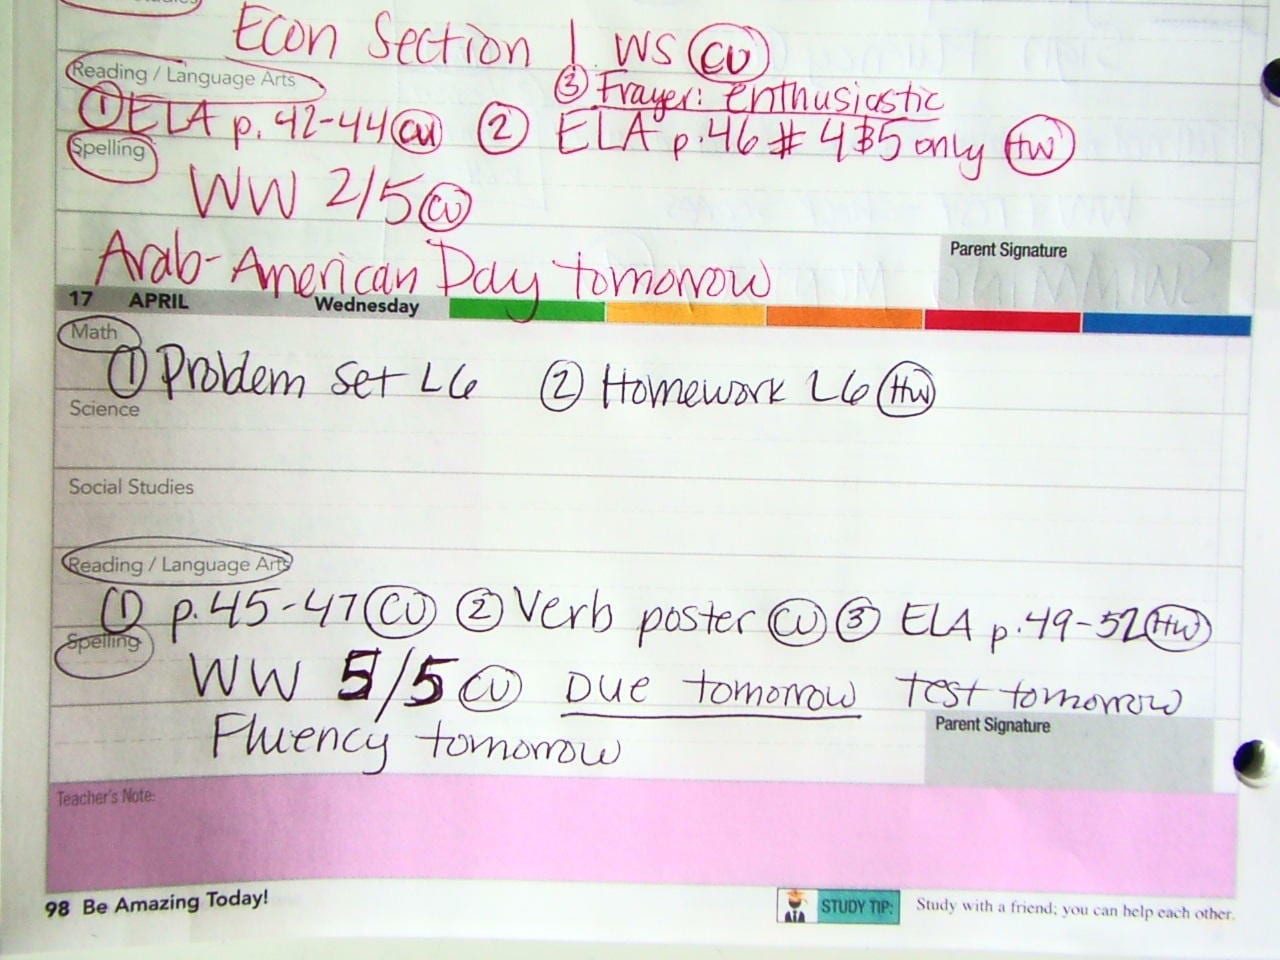 Econ Section 1 WS CW
Reading / Language Arts
③ Frayer: enthusiastic
① ELA p. 42-44 CW ② ELA p.46 # 4&5 only HW
Spelling
WW 2/5 CW
Arab-American Day tomorrow
Parent Signature
17 APRIL Wednesday
Math
① Problem Set L6 ② Homework L6 HW
Science
Social Studies
Reading / Language Arts
① p.45-47 CW ② Verb poster CW ③ ELA p.49-52 HW
Spelling
WW 5/5 CW Due tomorrow Test tomorrow
Fluency tomorrow
Parent Signature
Teacher's Note:
98 Be Amazing Today!
STUDY TIP: Study with a friend; you can help each other.